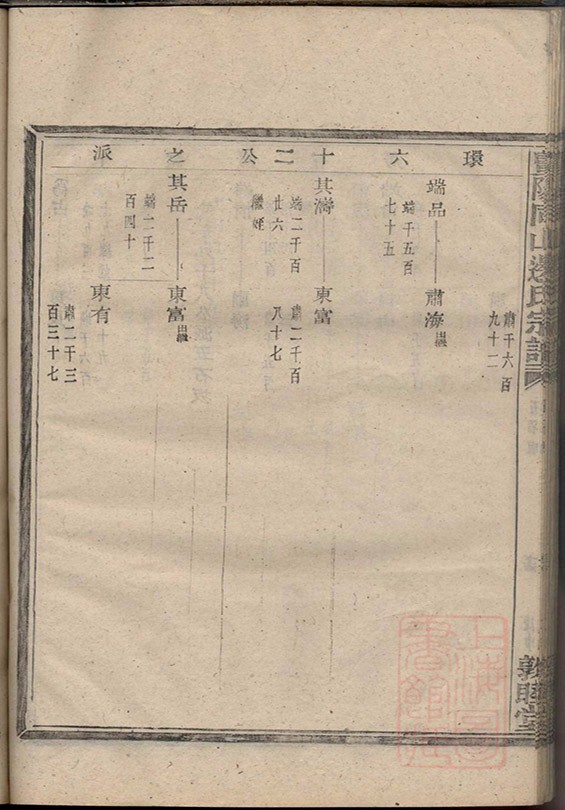 暨陽同山邊氏宗譜
敦睦堂
環六十二公之派
肅千六百
九十二
端品
肅海出繼
端千五百
七十五
其濤
東富
端二千百
廿六
繼姪
肅二千百
八十七
其岳
東富出繼
端二千二
百四十
東有
肅二千三
百三十七
上海圖書館藏